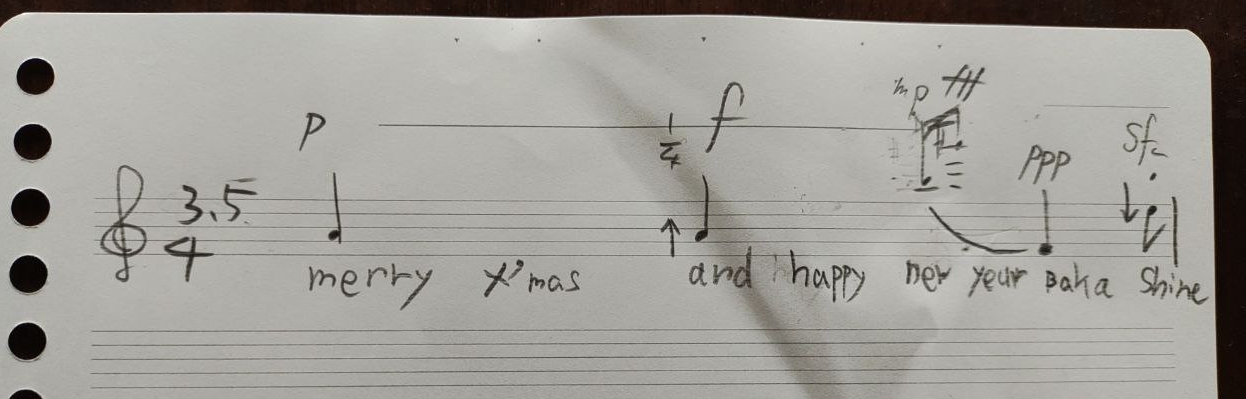 p f mp fff
1/4
3.5 ppp sf
4
merry X'mas and happy new year Baka Shine